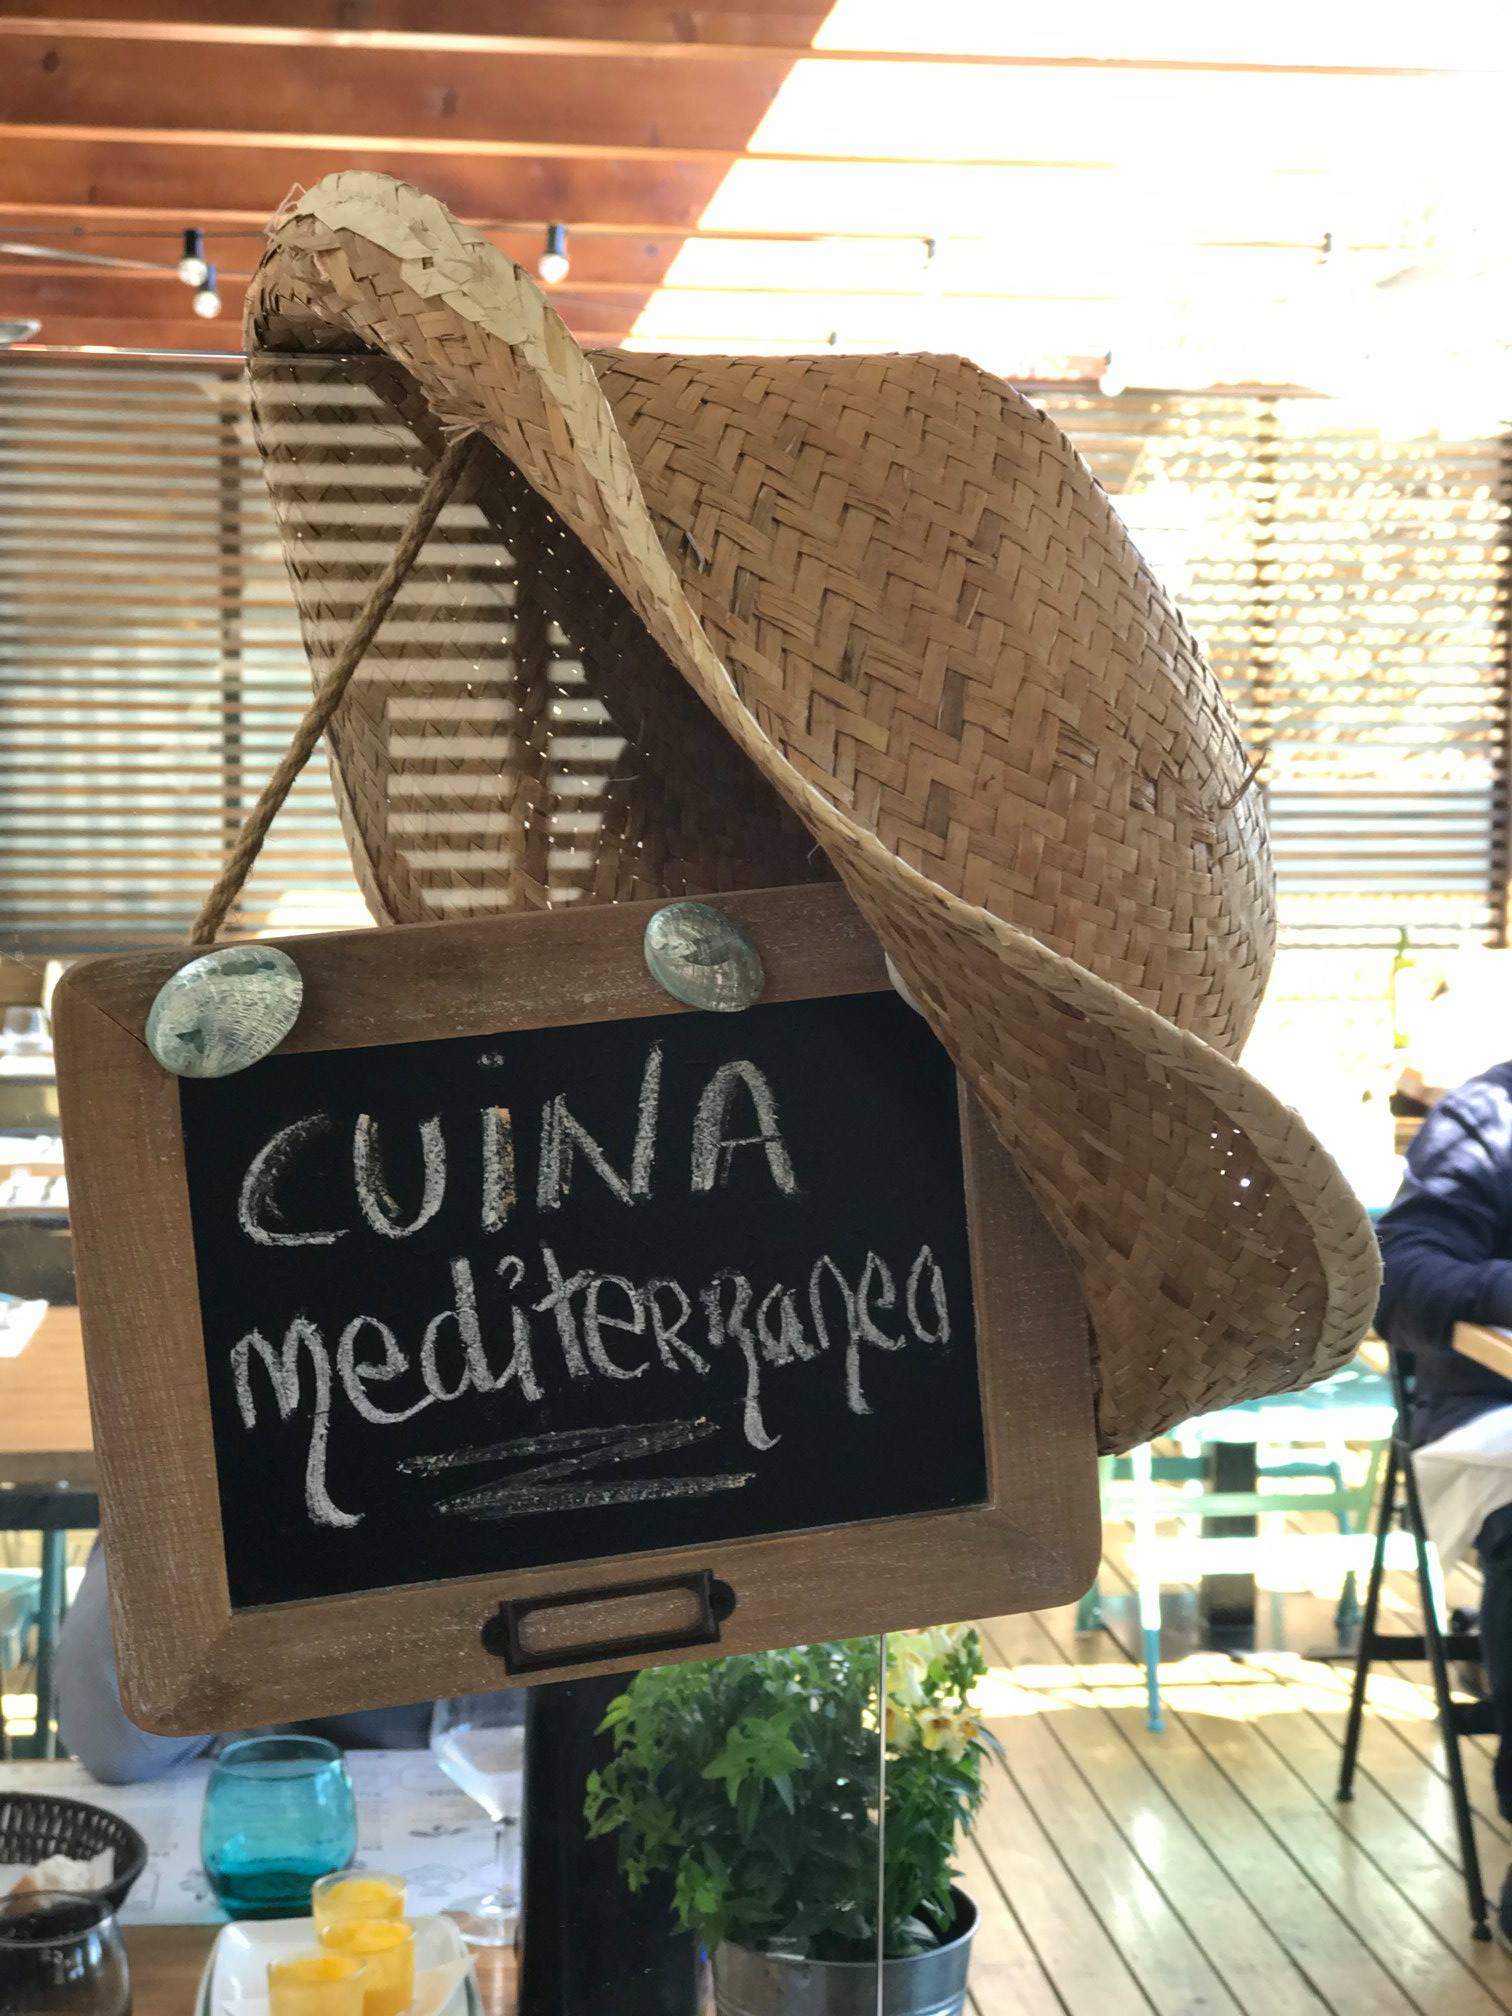 CUiNA
mediterranea